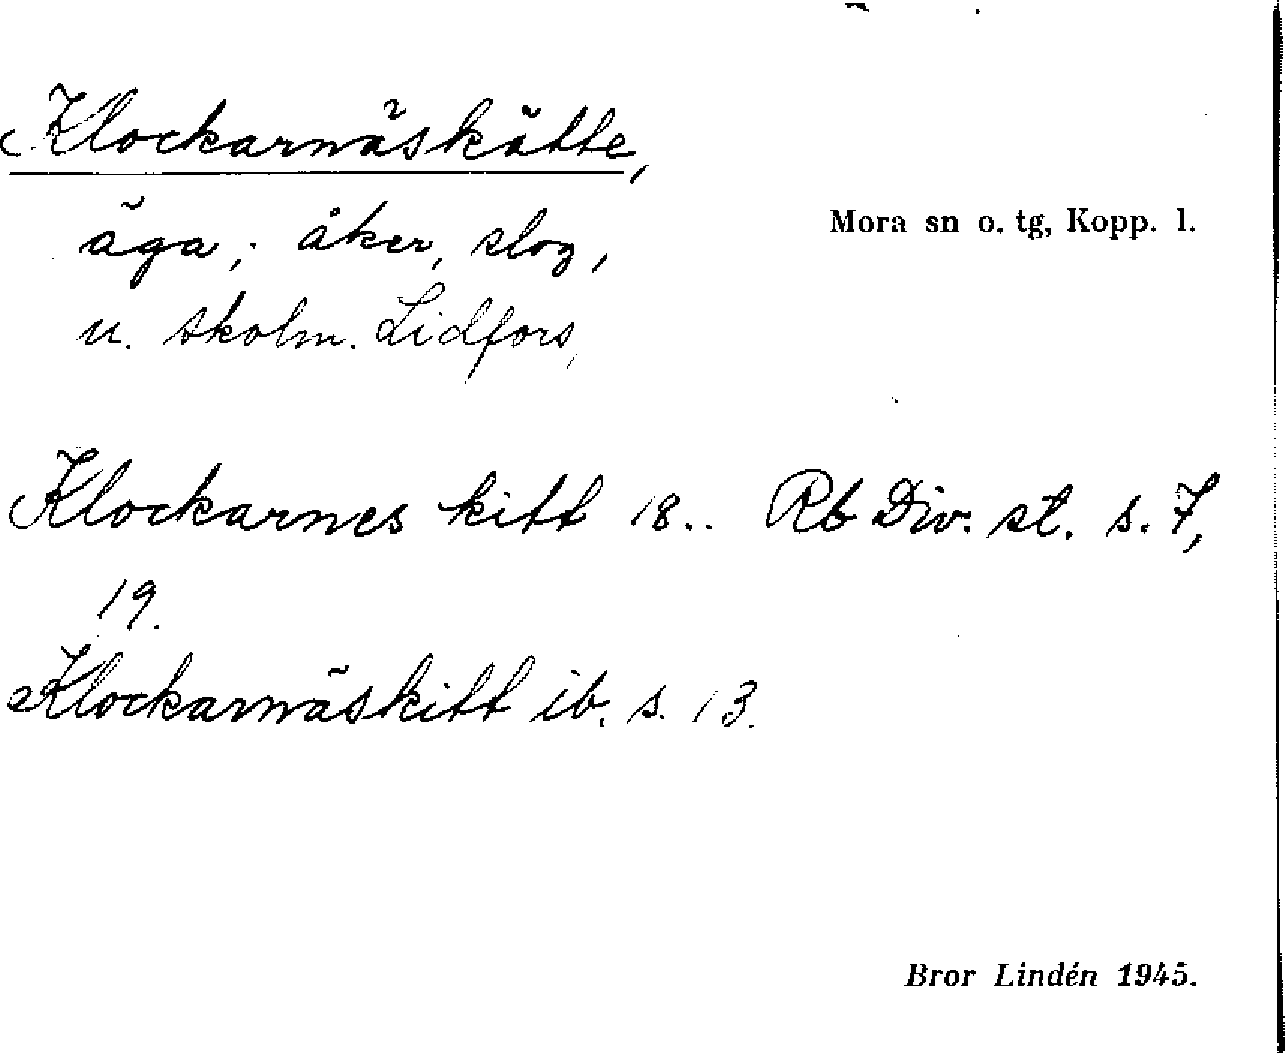 Klockarnäskätte,
äga; åker, slog,
Mora sn o. tg, Kopp. l.
u. skolm. Lidfors,
Klockarnes kitt 18.. Rb Div. st. s. 7,
19.
Klockarnäskitt ib. s. 13.
Bror Lindén 1945.